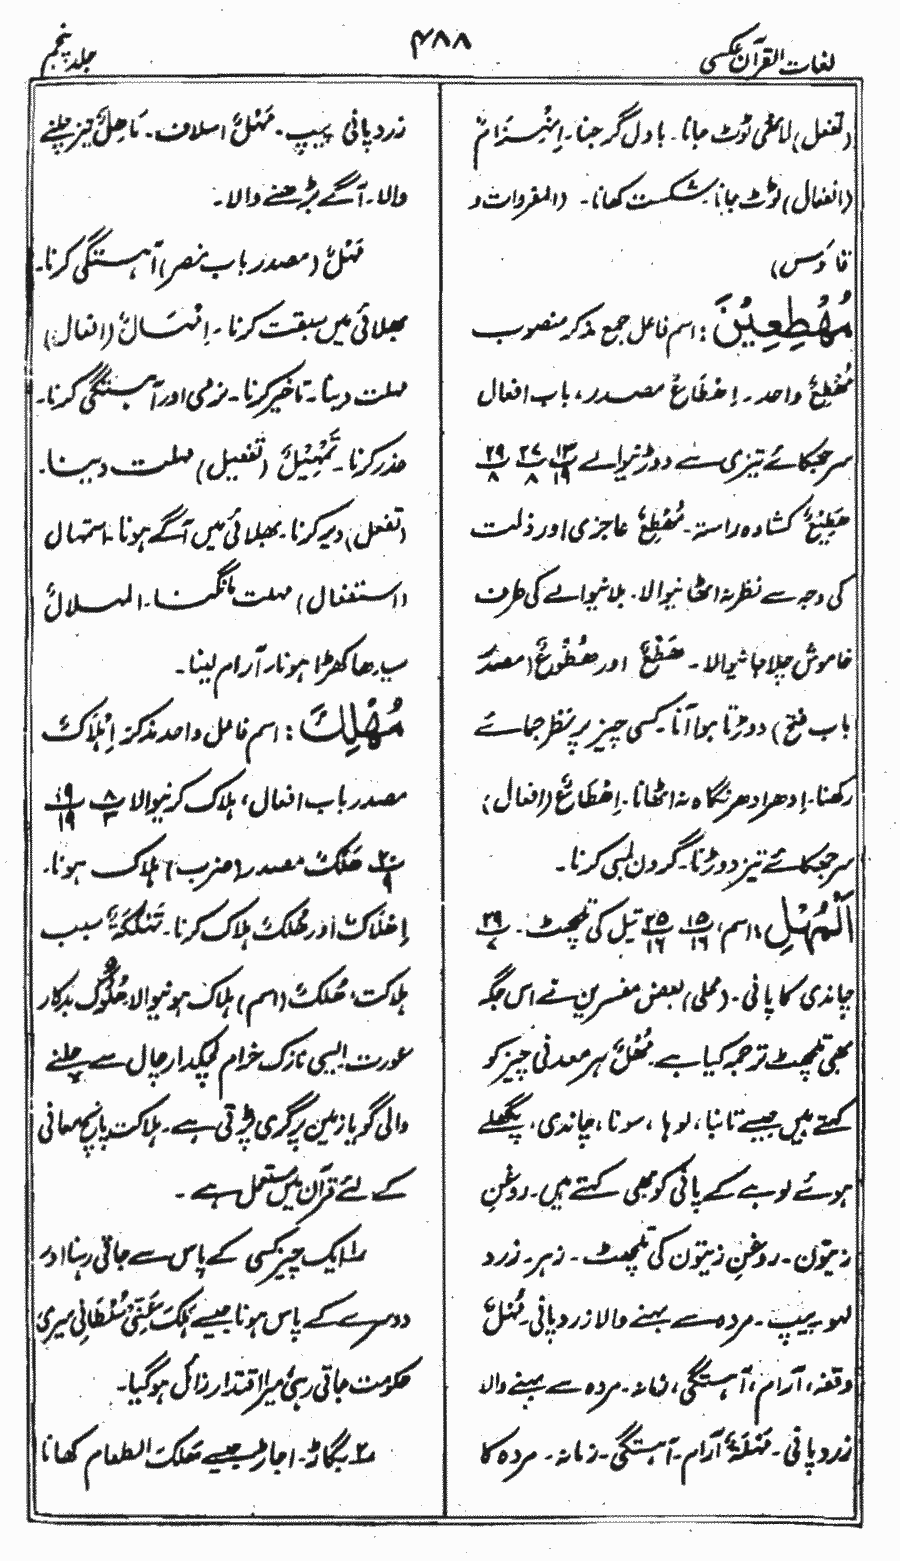 لغات القرآن عکسی
۴۸۸
جلد پنجم
(تفعل) لاٹھی ٹوٹ جانا۔ بادل گرجنا۔ اِنْہِزَامٌ
(انفعال) ٹوٹ جانا شکست کھانا۔ (المفردات و
قاموس)
مُهْطِعِيْنَ : اسم فاعل جمع مذکر منصوب
مُهْطِعٌ واحد۔ اِهْطَاعٌ مصدر، باب افعال
سر جھکائے تیزی سے دوڑنیوالے ۱۳/۱۹ ۲۷/۸ ۲۹/۸
هَطِيْعٌ کشادہ راستہ۔ مُهْطِعٌ عاجزی اور ذلت
کی وجہ سے نظر نہ اٹھانیوالا۔ بلانیوالے کی طرف
خاموش چلا جانیوالا۔ هَطْعٌ اور هُطُوْعٌ (مصدر
باب فتح) دوڑتا ہوا آنا۔ کسی چیز پر نظر جمائے
رکھنا۔ اِدھر اُدھر نگاہ نہ اٹھانا۔ اِهْطَاعٌ (افعال)
سر جھکائے تیز دوڑنا۔ گردن لمبی کرنا۔
اَلْمُهْلِ : اسم، ۱۵/۱۶ ۲۵/۱۶ تیل کی تلچھٹ۔ ۲۹/۷
چاندی کا پانی۔ (محلی) بعض مفسرین نے اس جگہ
بھی تلچھٹ ترجمہ کیا ہے۔ مُهْلٌ ہر معدنی چیز کو
کہتے ہیں جیسے تانبا، لوہا، سونا، چاندی، پگھلے
ہوئے لوہے کے پانی کو بھی کہتے ہیں۔ روغنِ
زیتون۔ روغنِ زیتون کی تلچھٹ۔ زہر۔ زرد
لہو۔ پیپ۔ مردہ سے بہنے والا زرد پانی۔ مُهْلٌ
وقفہ، آرام، آہستگی، زمانہ۔ مردہ سے بہنے والا
زرد پانی۔ مُهْلَةٌ آرام۔ آہستگی۔ زمانہ۔ مردہ کا
زرد پانی پیپ۔ مَهْلٌ اسلاف۔ مَاهِلٌ تیز چلنے
والا۔ آگے بڑھنے والا۔
مَهْلٌ (مصدر باب نصر) آہستگی کرنا۔
بھلائی میں سبقت کرنا۔ اِمْهَالٌ (افعال)
مہلت دینا۔ تاخیر کرنا۔ نرمی اور آہستگی کرنا۔
عذر کرنا۔ تَمْهِيْلٌ (تفعیل) مہلت دینا۔
(تفعل) دیر کرنا۔ بھلائی میں آگے ہونا۔ استمہال
(استفعال) مہلت مانگنا۔
سیدھا کھڑا ہونا۔ آرام لینا۔
مُهْلِكَ : اسم فاعل واحد مذکر اِهْلَاكٌ
مصدر باب افعال، ہلاک کرنیوالا ۸/۳ ۱۹/۱۹
۲۰/۹ هَلْكٌ مصدر (ضرب) ہلاک ہونا۔
اِهْلَاكٌ اور هُلْكٌ ہلاک کرنا۔ تَهْلُكَةٌ سبب
ہلاکت، هُلْكٌ (اسم) ہلاک ہونیوالا هَلُوْكٌ بدکار
عورت ایسی نازک خرام لچکدار چال سے چلنے
والی گویا زمین پر گری پڑتی ہے۔ ہلاکت پانچ معانی
کے لئے قرآن میں مستعمل ہے۔
۱ ایک چیز کسی کے پاس سے جاتی رہنا اور
دوسرے کے پاس ہونا جیسے هَلَكَ عَنِّيْ سُلْطَانِيْ میری
حکومت جاتی رہی میرا اقتدار زائل ہوگیا۔
۲ بگاڑ۔ اجاڑ جیسے هلك الطعام کھانا